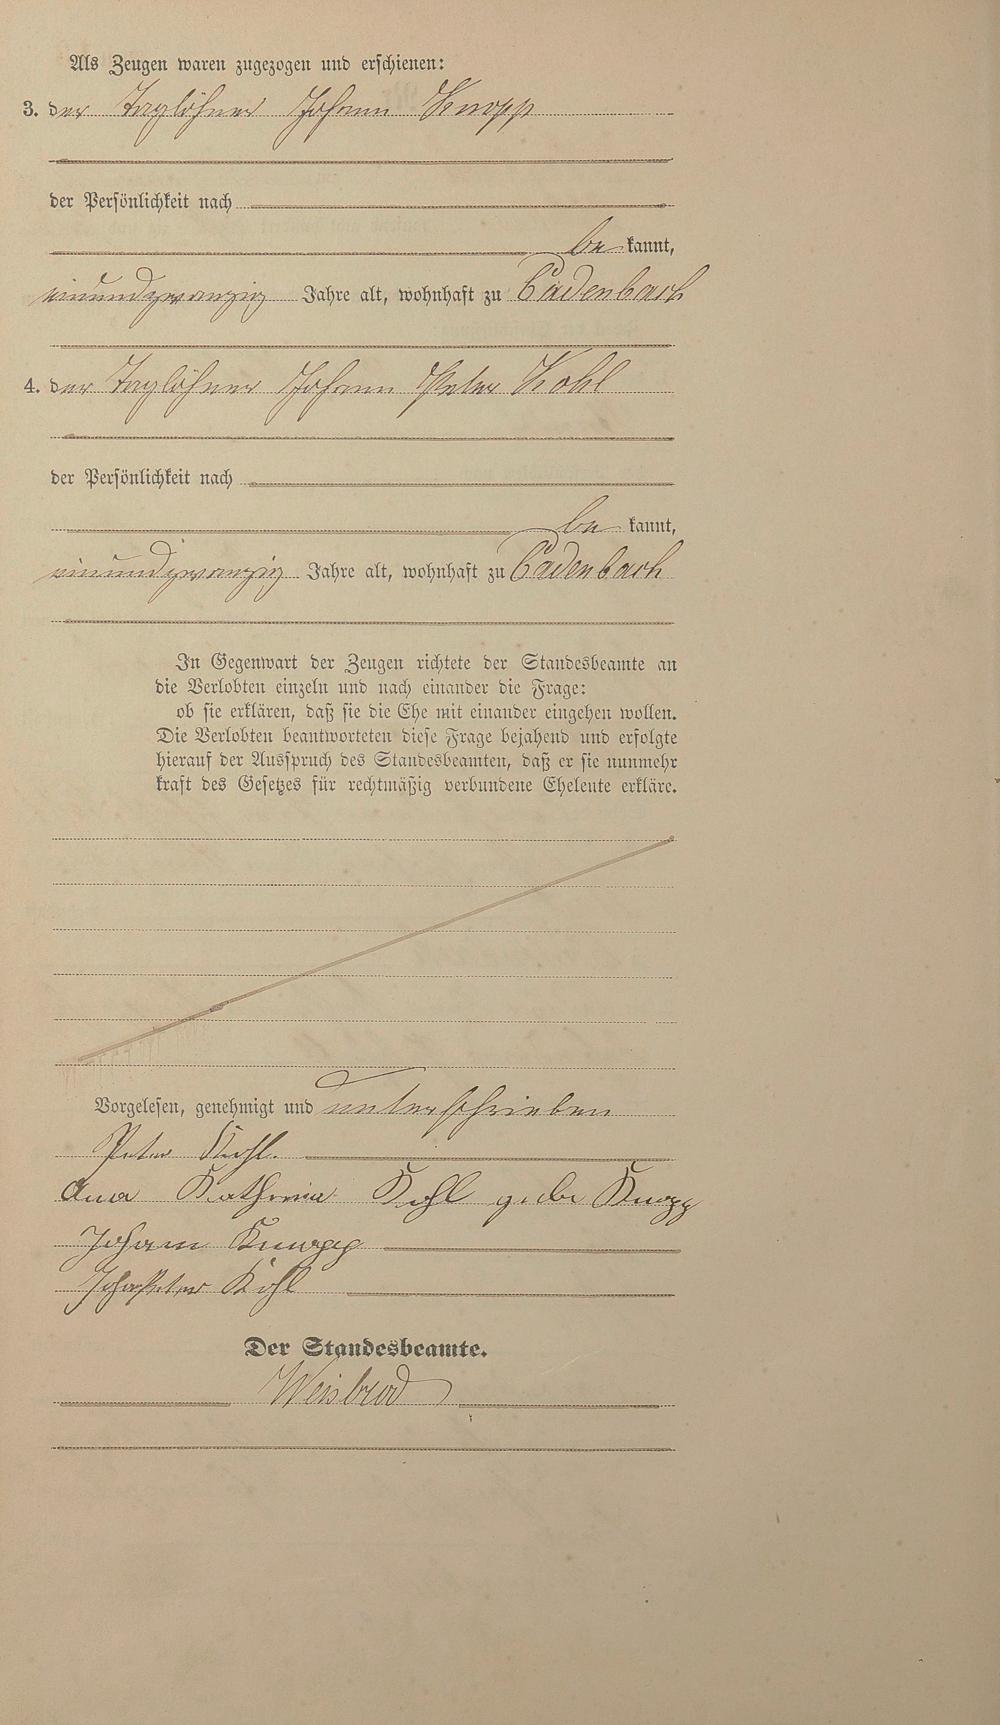 Als Zeugen waren zugezogen und erschienen:
3. der Taglöhner Johann Knopp
der Persönlichkeit nach
be kannt,
einundzwanzig Jahre alt, wohnhaft zu Cadenbach
4. der Taglöhner Johann Peter Kohl
der Persönlichkeit nach
be kannt,
einundzwanzig Jahre alt, wohnhaft zu Cadenbach
In Gegenwart der Zeugen richtete der Standesbeamte an
die Verlobten einzeln und nach einander die Frage:
ob sie erklären, daß sie die Ehe mit einander eingehen wollen.
Die Verlobten beantworteten diese Frage bejahend und erfolgte
hierauf der Ausspruch des Standesbeamten, daß er sie nunmehr
kraft des Gesetzes für rechtmäßig verbundene Eheleute erkläre.
Vorgelesen, genehmigt und unterschrieben
Peter Kohl.
Anna Katharina Kohl gebe Knopp
Johann Knopp
Joha Peter Kohl
Der Standesbeamte.
Weisbrod